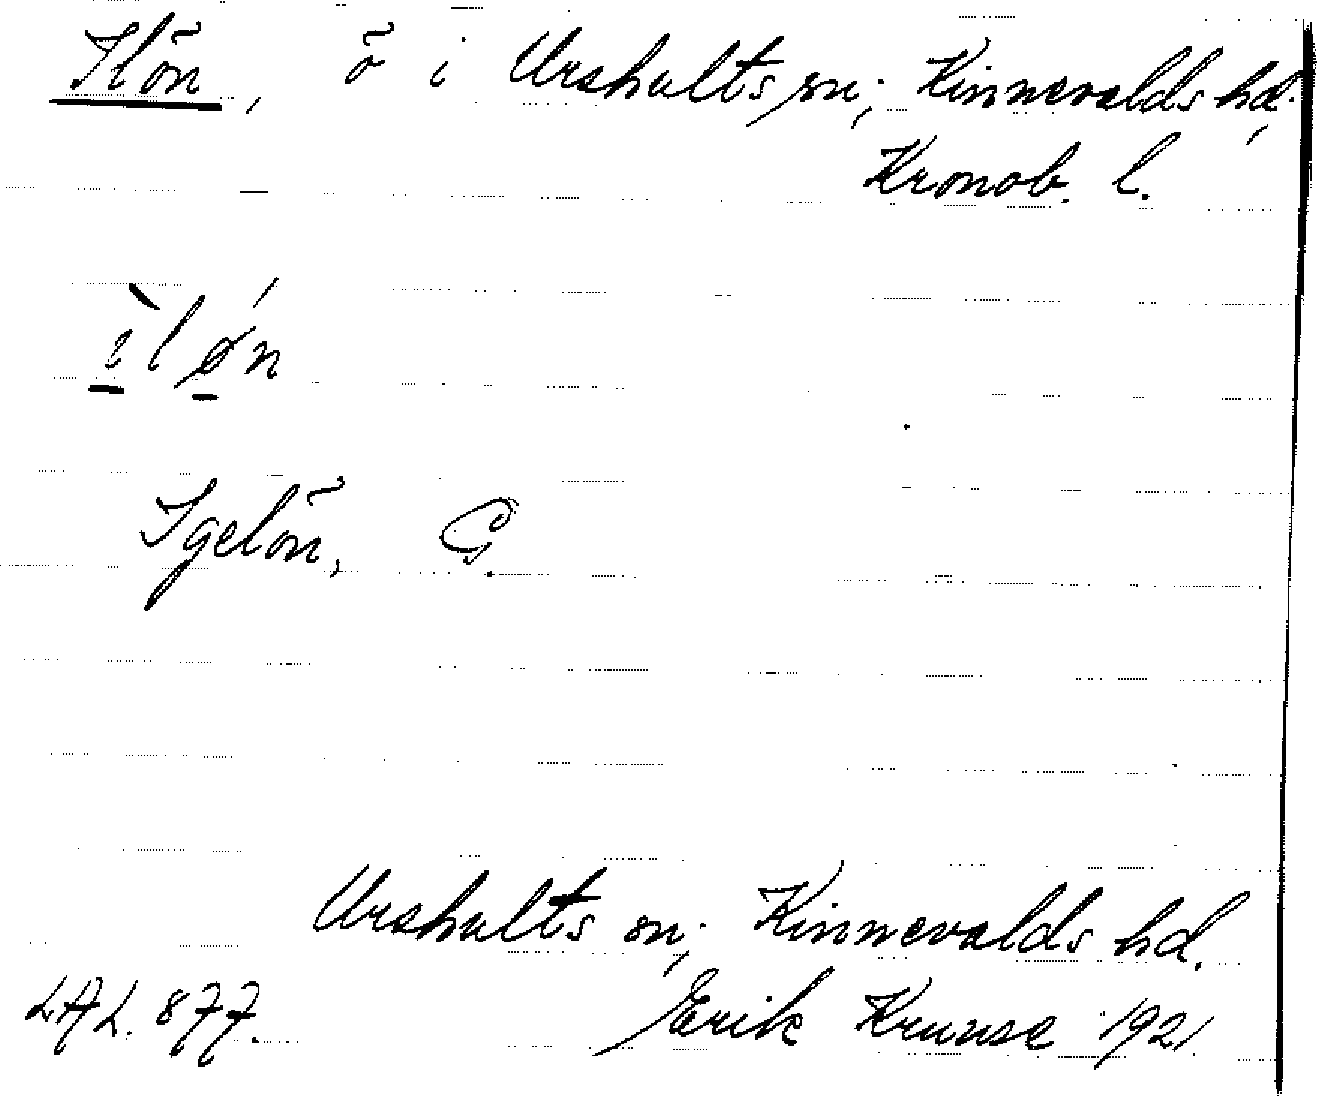 Ilön, ö i Urshults sn; Kinnevalds hd.,
Kronob. l.
ìløń
Igelön, G.
Urshults sn; Kinnevalds hd.
LAL. 877. Erik Krunse 1921.